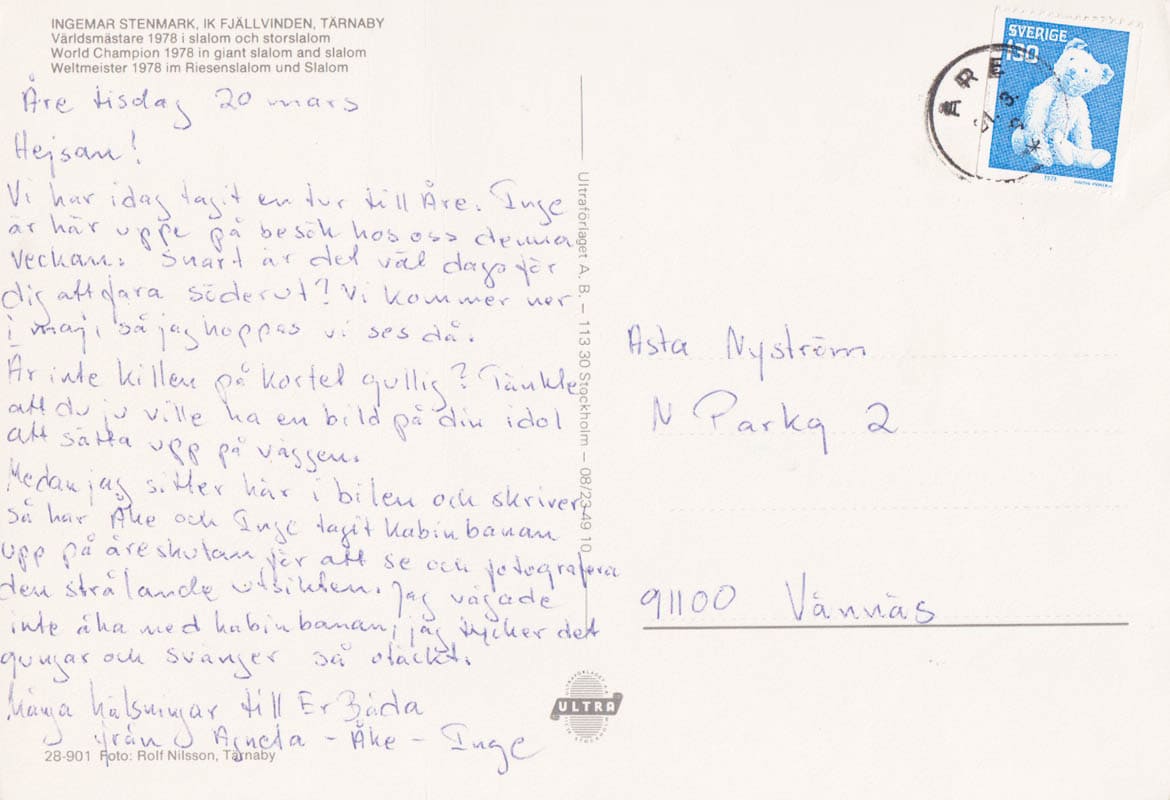 INGEMAR STENMARK, IK FJÄLLVINDEN, TÄRNABY
Världsmästare 1978 i slalom och storslalom
World Champion 1978 in giant slalom and slalom
Weltmeister 1978 im Riesenslalom und Slalom
Åre tisdag 20 mars
Hejsan!
Vi har idag tagit en tur till Åre. Inge
är här uppe på besök hos oss denna
veckan. Snart är det väl dags för
dig att fara söderut? Vi kommer ner
i maj, så jag hoppas vi ses då.
Är inte killen på kortet gullig? Tänkte
att du ju ville ha en bild på din idol
att sätta upp på väggen.
Medan jag sitter här i bilen och skriver
så har Åke och Inge tagit kabinbanan
upp på åreskutan för att se och fotografera
den strålande utsikten. Jag vågade
inte åka med kabinbanan, jag tycker det
gungar och svänger så otäckt.
Många hälsningar till Er Båda
från Agneta - Åke - Inge
28-901 Foto: Rolf Nilsson, Tärnaby
Ultraförlaget A. B. – 113 30 Stockholm – 08/23 49 10
ULTRA
SVERIGE
130
1978
ÅRE
Asta Nyström
N Parkg 2
91100 Vännäs